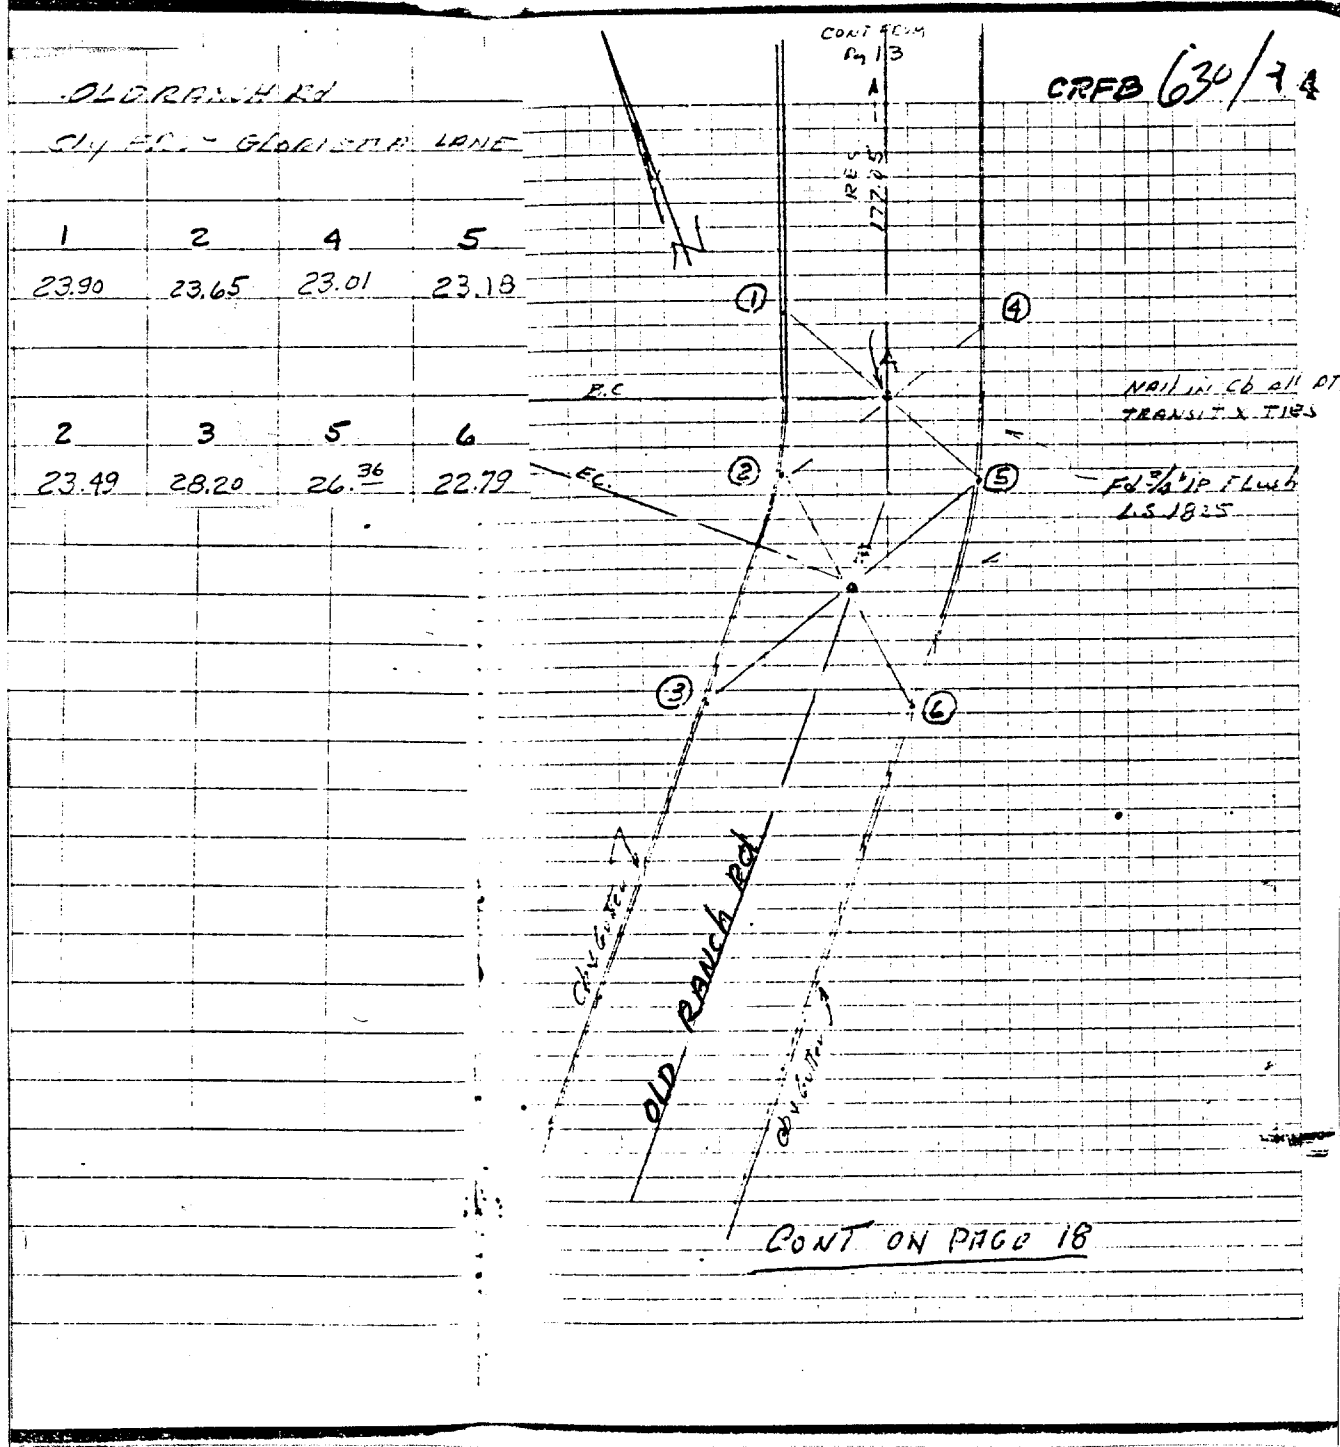 OLD RANCH Rd
GLORIETTA LANE
1 2 4 5
23.90 23.65 23.01 23.18
2 3 5 6
23.49 28.20 26.36 22.79
CONT FROM
Pg 13
CRFB 630/
RES
177.95
N
1
4
B.C
NAIL IN Cb all PT
TRANSIT X TIES
2
E.C.
5
Fd 3/4" IP Flush
L.S 1825
3
6
Cb & Gutter
OLD RANCH Rd
Cb & Gutter
CONT ON PAGE 18